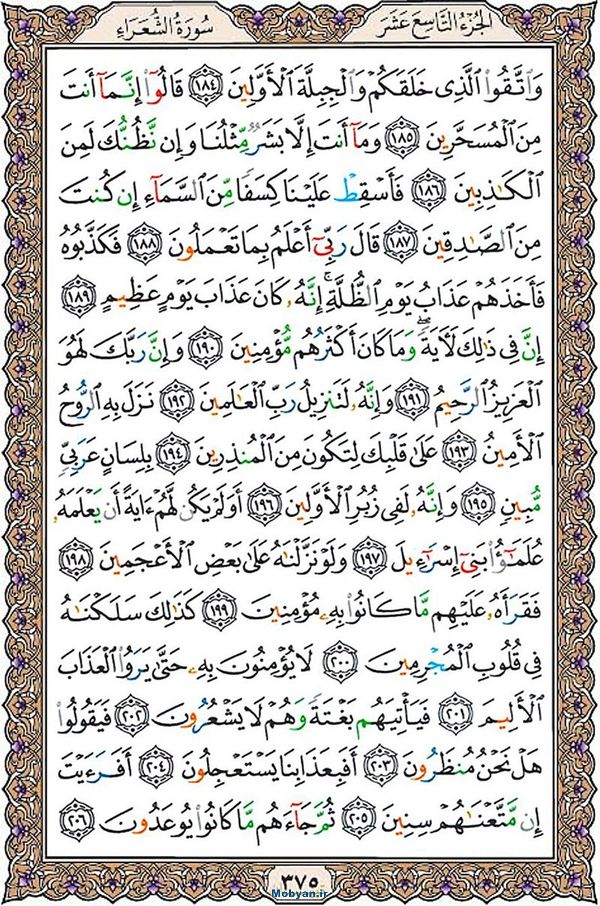 الجزء التاسع عشر
سورة الشعراء
وَاتَّقُوا الَّذِي خَلَقَكُمْ وَالْجِبِلَّةَ الْأَوَّلِينَ ١٨٤ قَالُوا إِنَّمَا أَنتَ
مِنَ الْمُسَحَّرِينَ ١٨٥ وَمَا أَنتَ إِلَّا بَشَرٌ مِّثْلُنَا وَإِن نَّظُنُّكَ لَمِنَ
الْكَاذِبِينَ ١٨٦ فَأَسْقِطْ عَلَيْنَا كِسَفًا مِّنَ السَّمَاءِ إِن كُنتَ
مِنَ الصَّادِقِينَ ١٨٧ قَالَ رَبِّي أَعْلَمُ بِمَا تَعْمَلُونَ ١٨٨ فَكَذَّبُوهُ
فَأَخَذَهُمْ عَذَابُ يَوْمِ الظُّلَّةِ ۚ إِنَّهُ كَانَ عَذَابَ يَوْمٍ عَظِيمٍ ١٨٩
إِنَّ فِي ذَٰلِكَ لَآيَةً ۖ وَمَا كَانَ أَكْثَرُهُم مُّؤْمِنِينَ ١٩٠ وَإِنَّ رَبَّكَ لَهُوَ
الْعَزِيزُ الرَّحِيمُ ١٩١ وَإِنَّهُ لَتَنزِيلُ رَبِّ الْعَالَمِينَ ١٩٢ نَزَلَ بِهِ الرُّوحُ
الْأَمِينُ ١٩٣ عَلَىٰ قَلْبِكَ لِتَكُونَ مِنَ الْمُنذِرِينَ ١٩٤ بِلِسَانٍ عَرَبِيٍّ
مُّبِينٍ ١٩٥ وَإِنَّهُ لَفِي زُبُرِ الْأَوَّلِينَ ١٩٦ أَوَلَمْ يَكُن لَّهُمْ ءَايَةً أَن يَعْلَمَهُ
عُلَمَٰؤُا بَنِي إِسْرَٰءِيلَ ١٩٧ وَلَوْ نَزَّلْنَٰهُ عَلَىٰ بَعْضِ الْأَعْجَمِينَ ١٩٨
فَقَرَأَهُ عَلَيْهِم مَّا كَانُوا بِهِ مُؤْمِنِينَ ١٩٩ كَذَٰلِكَ سَلَكْنَٰهُ
فِي قُلُوبِ الْمُجْرِمِينَ ٢٠٠ لَا يُؤْمِنُونَ بِهِ حَتَّىٰ يَرَوُا الْعَذَابَ
الْأَلِيمَ ٢٠١ فَيَأْتِيَهُم بَغْتَةً وَهُمْ لَا يَشْعُرُونَ ٢٠٢ فَيَقُولُوا
هَلْ نَحْنُ مُنظَرُونَ ٢٠٣ أَفَبِعَذَابِنَا يَسْتَعْجِلُونَ ٢٠٤ أَفَرَءَيْتَ
إِن مَّتَّعْنَٰهُمْ سِنِينَ ٢٠٥ ثُمَّ جَاءَهُم مَّا كَانُوا يُوعَدُونَ ٢٠٦
٣٧٥
Mobyan.ir